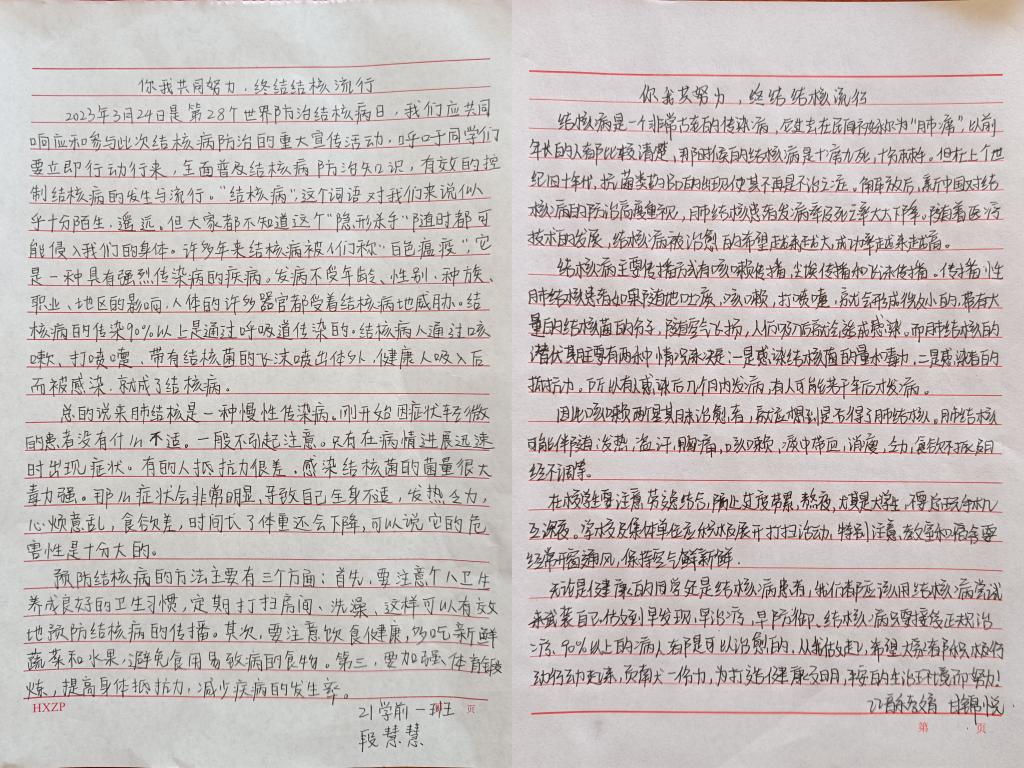 你我共同努力，终结结核流行
2023年3月24日是第28个世界防治结核病日，我们应共同
响应和参与此次结核病防治的重大宣传活动，呼吁同学们
要立即行动行来，全面普及结核病防治知识，有效的控
制结核病的发生与流行。"结核病"，这个词语对我们来说似
乎十分陌生，遥远。但大家都不知道这个"隐形杀手"随时都可
能侵入我们的身体。许多年来结核病被人们称"白色瘟疫"，它
是一种具有强烈传染病的疾病。发病不受年龄、性别、种族、
职业、地区的影响，人体的许多器官都受着结核病地威胁。结
核病的传染90%以上是通过呼吸道传染的。结核病人通过咳
嗽、打喷嚏，带有结核菌的飞沫喷出体外，健康人吸入后
而被感染，就成了结核病。
总的说来肺结核是一种慢性传染病。刚开始因症状轻微
的患者没有什么不适。一般不引起注意。只有在病情进展迅速
时出现症状。有的人抵抗力很差，感染结核菌的菌量很大
毒力强。那么症状会非常明显，导致自己全身不适，发热乏力，
心烦意乱，食欲差，时间长了体重还会下降，可以说它的危
害性是十分大的。
预防结核病的方法主要有三个方面：首先，要注意个人卫生
养成良好的卫生习惯，定期打扫房间、洗澡、这样可以有效
地预防结核病的传播。其次，要注意饮食健康，多吃新鲜
蔬菜和水果，避免食用易致病的食物。第三，要加强体育锻
炼，提高身体抵抗力，减少疾病的发生率。
HXZP 页
21学前一班
段慧慧
你我共努力，终结结核流行
结核病是一个非常古老的传染病，它过去在民间被称为"肺痨"，以前
年长的人都比较清楚，那时候的结核病是十痨九死，十分棘手。但在上个世
纪四十年代，抗菌类药物的出现使其不再是不治之症。解放后，新中国对结
核病的防治高度重视，肺结核患者发病率及死亡率大大下降。随着医疗
技术的发展，结核病被治愈的希望越来越大，成功率越来越高。
结核病主要传播方式有咳嗽传播，尘埃传播和飞沫传播。传播性
肺结核患者如果随地吐痰，咳嗽，打喷嚏，就会形成极小的，带有大
量的结核菌的分子，随空气飞扬，人们吸入后就会造成感染。而肺结核的
潜伏期主要有两种情况决定：一是感染结核菌的量和毒力，二是感染者的
抵抗力。所以有人感染后几个月内发病，有人可能若干年后才发病。
因此咳嗽两周其未治愈者，就应想到是否得了肺结核。肺结核
可能伴随发热，盗汗，胸痛，咳嗽，痰中带血，消瘦，乏力，食欲不振，月
经不调等。
在校学生要注意劳逸结合，防止过度劳累，熬夜，尤其是大学生，不要总玩手机
至深夜。学校及集体单位应积极展开打扫活动，特别注意教室和宿舍要
经常开窗通风，保持空气鲜新鲜。
无论是健康的同学还是结核病患者，我们都应该用结核病常识
来武装自己，做到早发现，早治疗，早防御。结核病只要接受正规治
疗，90%以上的病人都是可以治愈的，从我做起，希望大家都积极行
动行动起来，贡献一份力，为打造健康文明，平安的生活环境而努力！
甘锦悦
第 页